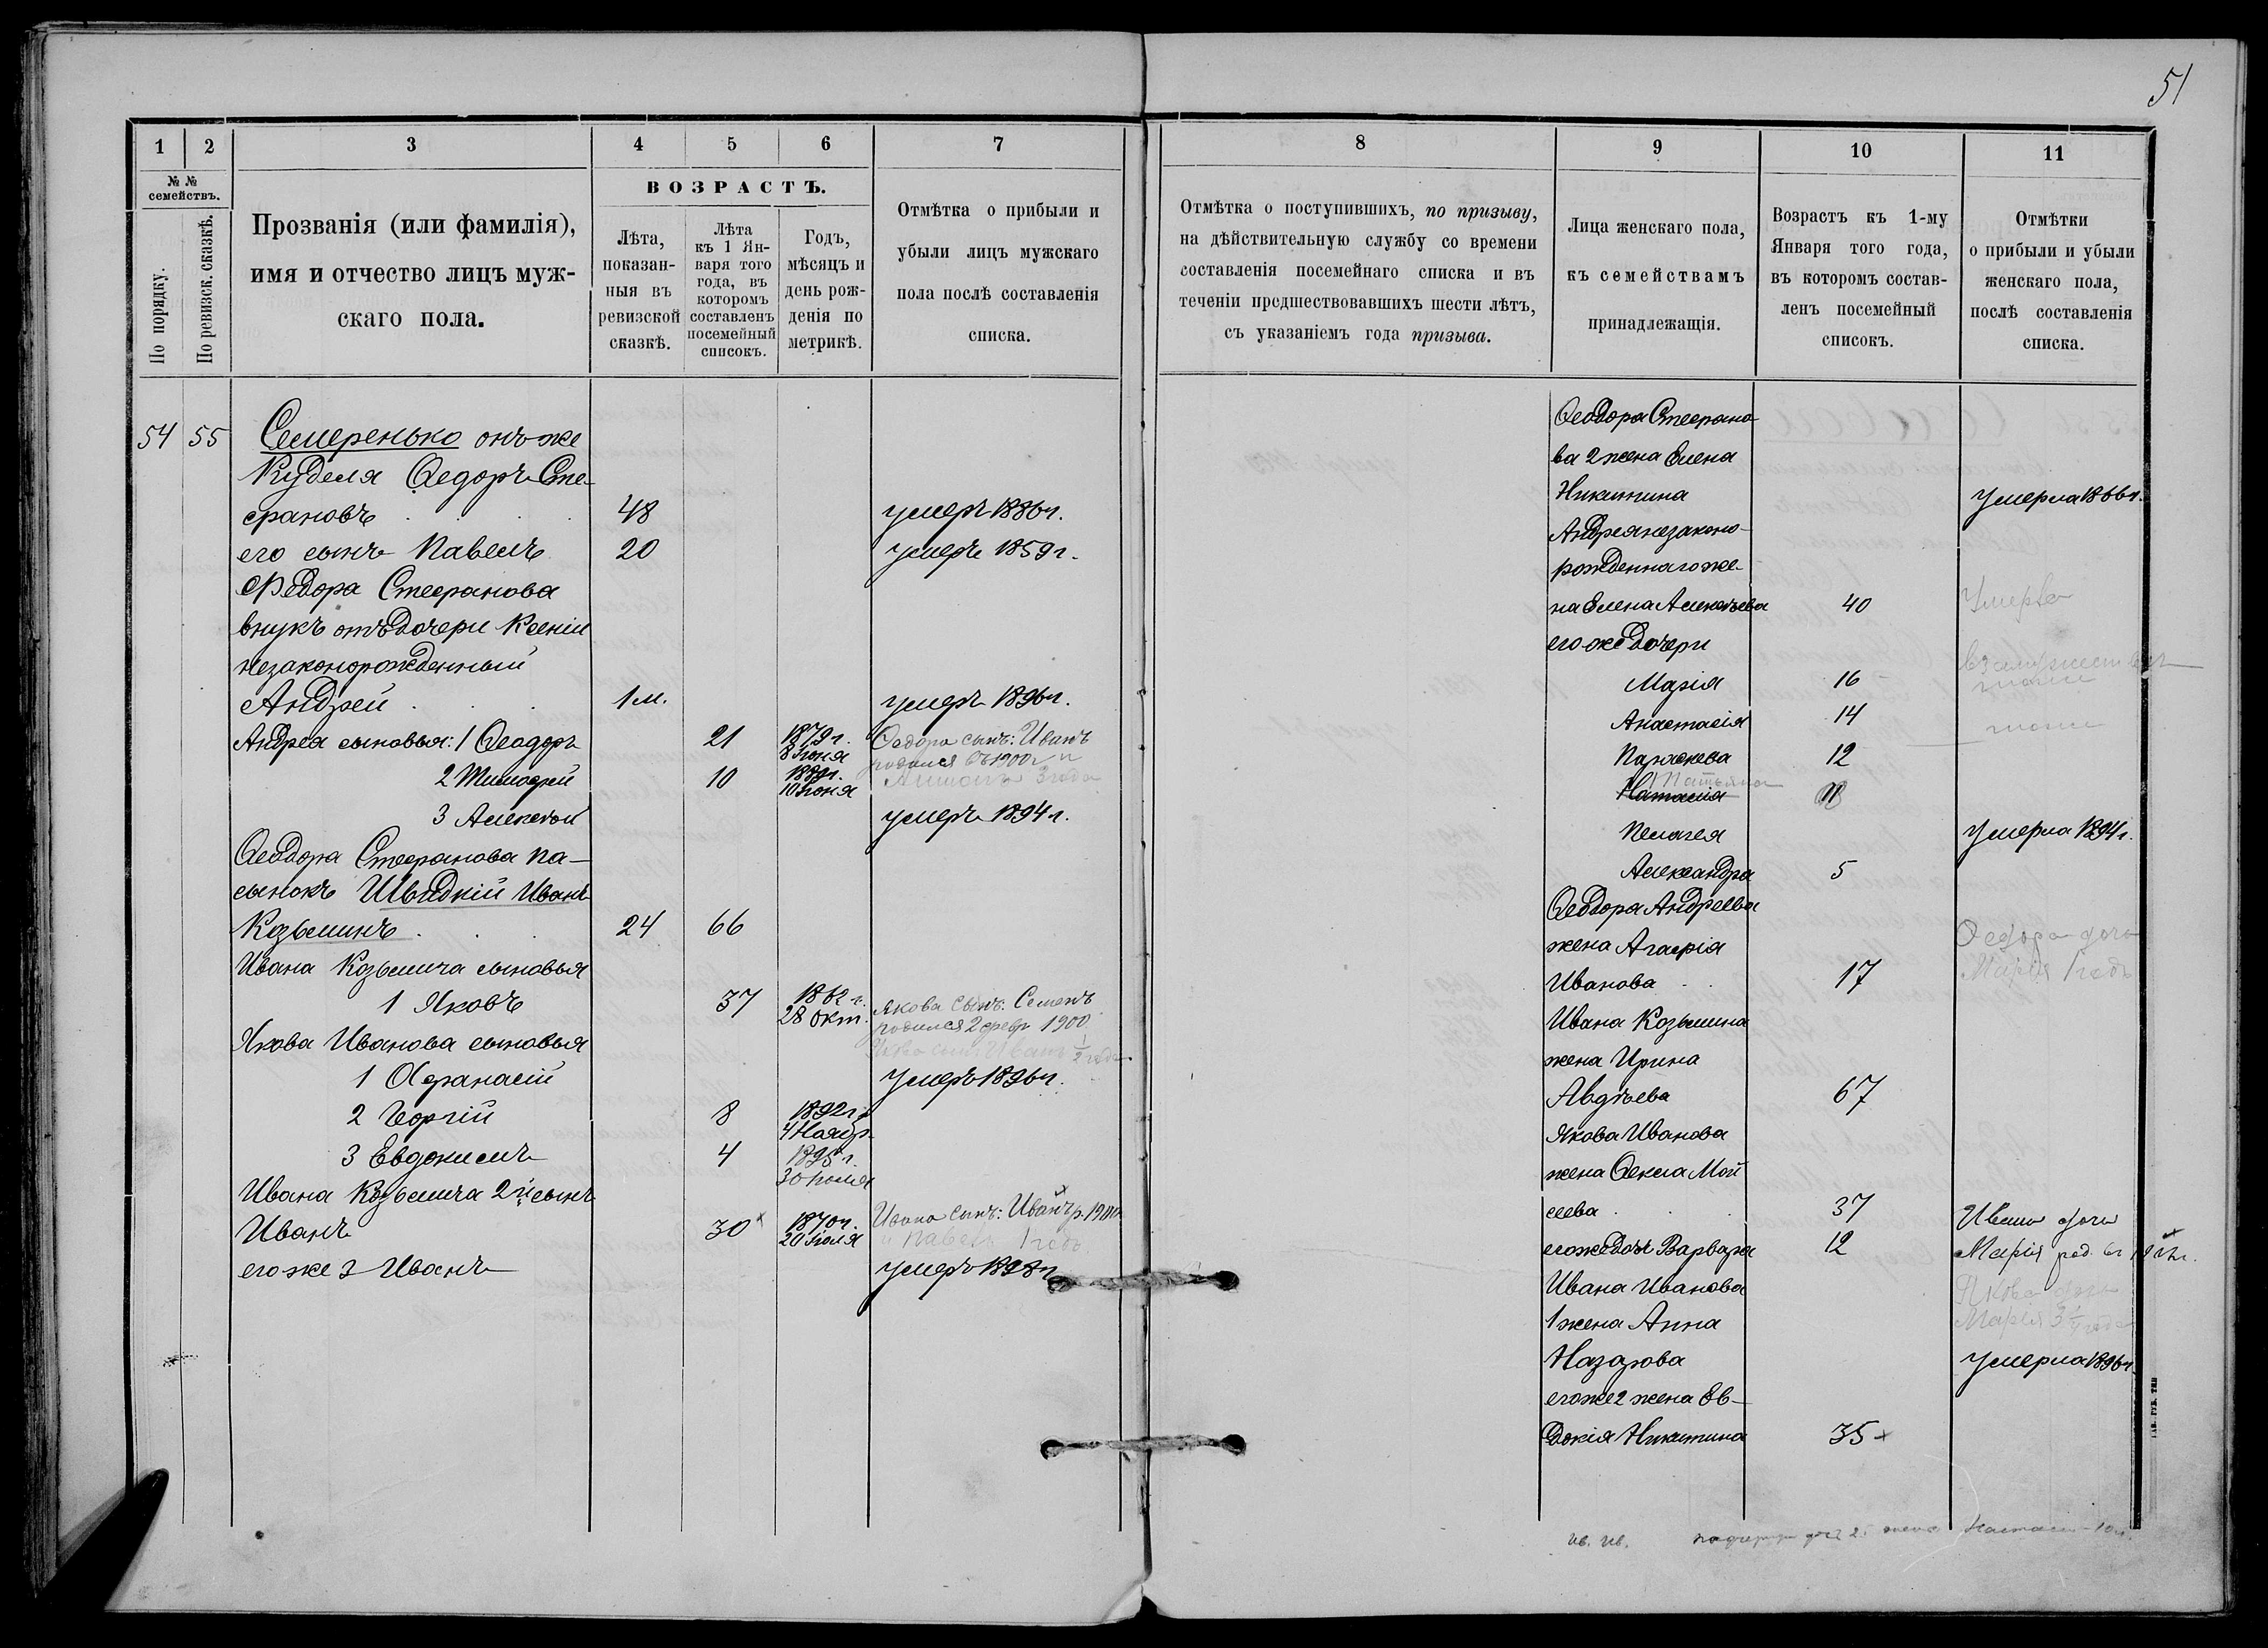 51
1 2 3 4 5 6 7
№ № семействъ.
По порядку.
По ревизск. сказкѣ.
Прозванія (или фамилія),
имя и отчество лицъ муж-
скаго пола.
ВОЗРАСТЪ.
Лѣта,
показан-
ныя въ
ревизской
сказкѣ.
Лѣта
къ 1 Ян-
варя того
года, въ
которомъ
составленъ
посемейный
списокъ.
Годъ,
мѣсяцъ и
день рож-
денія по
метрикѣ.
Отмѣтка о прибыли и
убыли лицъ мужскаго
пола послѣ составленія
списка.
54 55 Семеренько онъ же
Куделя Ѳедоръ Сте-
фановъ 48 умеръ 1886 г.
его сынъ Павелъ 20 умеръ 1859 г.
Ѳедора Стефанова
внукъ отъ дочери Ксеніи
незаконорожденный
Андрей 1 м. умеръ 1896 г.
Андрея сыновья: 1 Ѳеодоръ 21 1879 г. 8 Іюня Ѳедора сынъ: Иванъ
родился въ 1900 г. и
2 Тимофей 10 1889 г. 10 Іюня 3 года
3 Алексѣй умеръ 1894 г.
Ѳеодора Стефанова па-
сынокъ Швидкій Иванъ
Козьминъ 24 66
Ивана Козьмича сыновья
1 Яковъ 37 1862 г. 28 Окт. Якова сынъ: Семенъ
родился 2 февр 1900
Якова Иванова сыновья Иванъ 1/2 года
1 Афанасій умеръ 1896 г.
2 Георгій 8 1892 г. 4 Ноябр.
3 Евдокимъ 4 1895 г. 30 Іюля
Ивана Козьмича 2й сынъ
Иванъ 30 1870 г. 20 Іюля Ивана сынъ: Иванъ р. 1900
и Павелъ 1 годъ
его же 3 Иванъ умеръ 1898 г.
8 9 10 11
Отмѣтка о поступившихъ, по призыву,
на дѣйствительную службу со времени
составленія посемейнаго списка и въ
теченіи предшествовавшихъ шести лѣтъ,
съ указаніемъ года призыва.
Лица женскаго пола,
къ семействамъ
принадлежащія.
Возрастъ къ 1-му
Января того года,
въ которомъ состав-
ленъ посемейный
списокъ.
Отмѣтки
о прибыли и убыли
женскаго пола,
послѣ составленія
списка.
Ѳеодора Стефано-
ва 2 жена Елена
Никитина умерла 1886 г.
Андрея незаконо-
рожденнаго же-
на Елена Алексѣева 40 Умерла
его же дочери
Марія 16 въ замужествѣ
Анастасія 14 тоже
Параскева 12
Татьяна
Наталія
Пелагея умерла 1894 г.
Александра 5
Ѳеодора Андреева
жена Агафія Ѳедора дочь
Иванова 17 Марія 1 годъ
Ивана Козьмина
жена Ирина
Авдѣева 67
Якова Иванова
жена Ѳекла Мой
сеева 37 Ивана дочь
его же дочь Варвара 12 Марія род. въ
Ивана Иванова Якова дочь
1 жена Анна Марія
Назарова умерла 1896 г.
его же 2 жена Ев-
докія Никитина 35
Ив. Ив.